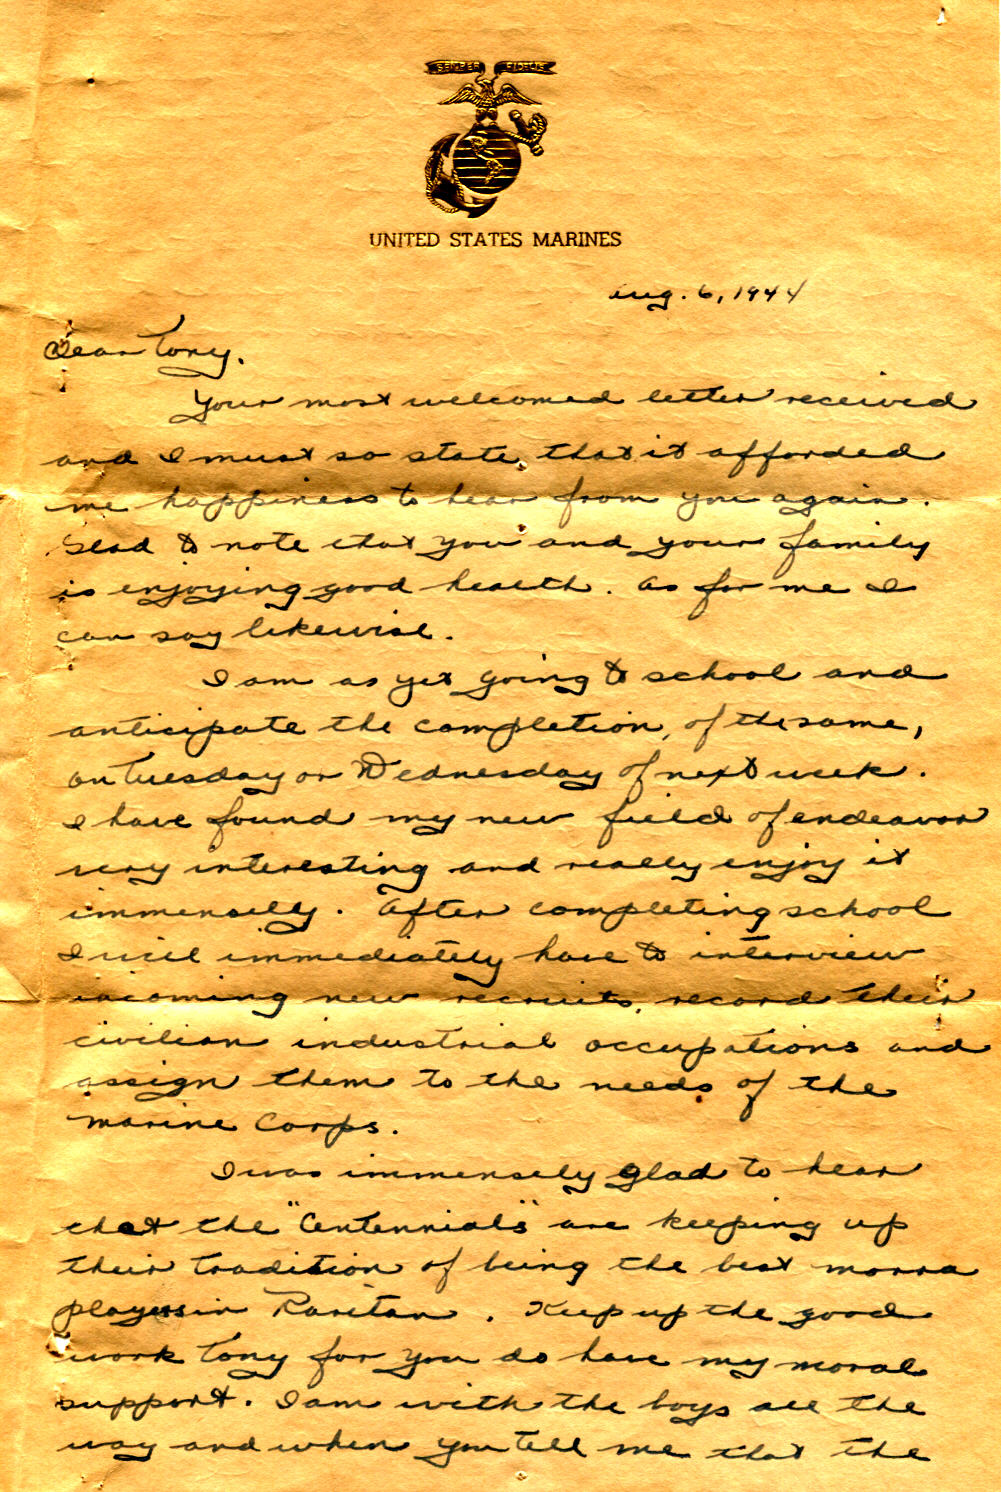 SEMPER FIDELIS
UNITED STATES MARINES
Aug. 6, 1944
Dear Tony.
Your most welcomed letter received
and I must so state, that it afforded
me happiness to hear from you again.
Glad to note that you and your family
is enjoying good health. As for me I
can say likewise.
I am as yet going to school and
anticipate the completion, of the same,
on Tuesday or Wednesday of next week.
I have found my new field of endeavor
very interesting and really enjoy it
immensely. After completing school
I will immediately have to interview
incoming new recruits, record their
civilian industrial occupations and
assign them to the needs of the
Marine Corps.
I was immensely glad to hear
that the "Centennials" are keeping up
their tradition of being the best morra
players in Raritan. Keep up the good
work Tony for you do have my moral
support. I am with the boys all the
way and when you tell me that the